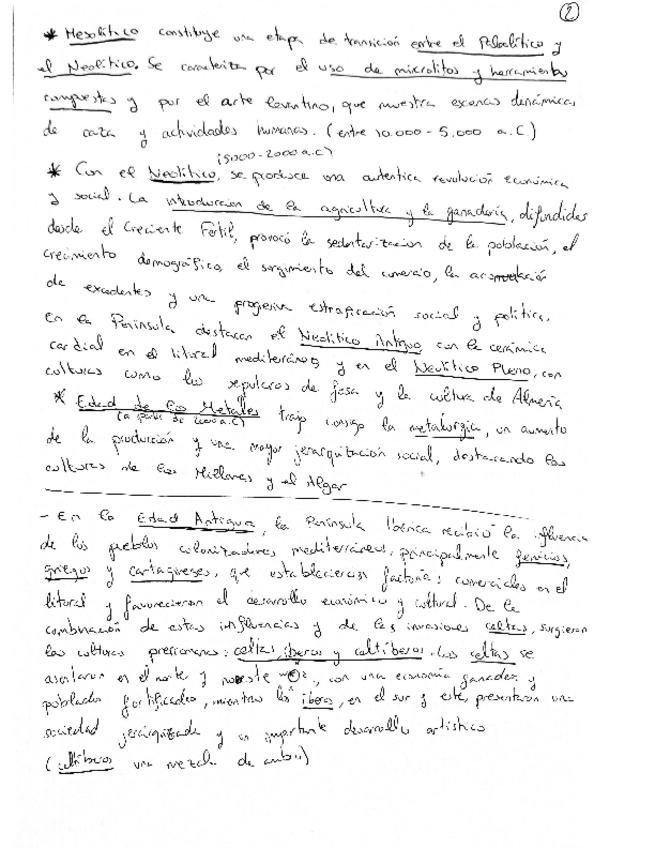 2
* Mesolítico constituye una etapa de transición entre el Paleolítico y
el Neolítico. Se caracteriza por el uso de microlitos y herramientas
compuestas y por el arte levantino, que muestra escenas dinámicas
de caza y actividades humanas. (entre 10.000 - 5.000 a.C)
(5000-2000 a.C)
* Con el Neolítico, se produce una autentica revolución económica
y social. La introducción de la agricultura y la ganadería, difundidas
desde el Creciente Fértil, provocó la sedentarización de la población, el
crecimiento demográfico, el surgimiento del comercio, la acumulación
de excedentes y una progresiva estratificación social y política.
En la Península destacan el Neolítico Antiguo con la cerámica
cardial en el litoral mediterráneo y en el Neolítico Pleno, con
culturas como los sepulcros de fosa y la cultura de Almería
* Edad de los Metales trajo consigo la metalurgia, un aumento
(a partir de 2000 a.C)
de la producción y una mayor jerarquización social, destacando las
culturas de los Millares y el Algar
- En la Edad Antigua, la Península Ibérica recibió la influencia
de los pueblos colonizadores mediterráneos, principalmente fenicios,
griegos y cartagineses, que establecieron factorías comerciales en el
litoral y favorecieron el desarrollo económico y cultural. De la
combinación de estas influencias y de las invasiones celtas, surgieron
las culturas prerromanas: celtas, iberos y celtíberos. Los celtas se
asentaron en el norte y noroeste, con una economía ganadera y
poblados fortificados, mientras los iberos, en el sur y este, presentaron una
sociedad jerarquizada y un importante desarrollo artístico
(celtíberos una mezcla de ambos)